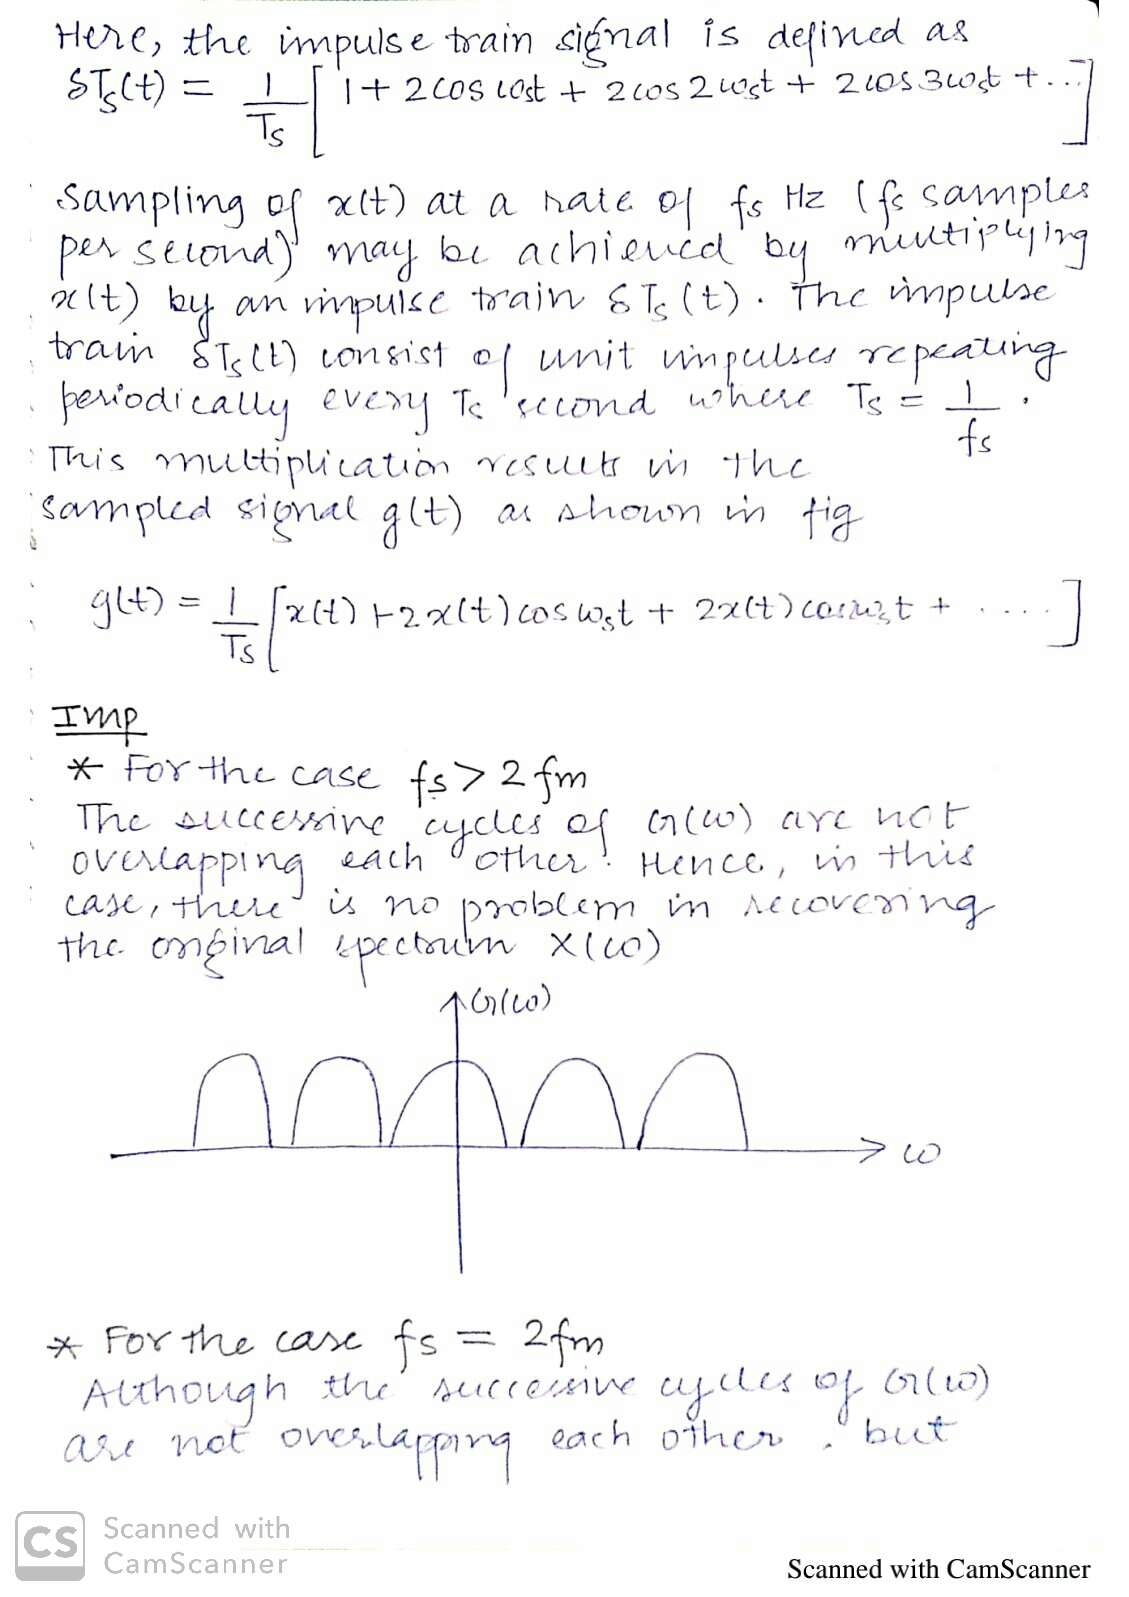 Here, the impulse train signal is defined as
δTs(t) = 1/Ts [ 1 + 2cos ωst + 2cos 2ωst + 2cos 3ωst + ... ]
Sampling of x(t) at a rate of fs Hz (fs samples
per second) may be achieved by multiplying
x(t) by an impulse train δTs(t). The impulse
train δTs(t) consist of unit impulses repeating
periodically every Ts second where Ts = 1/fs.
This multiplication results in the
sampled signal g(t) as shown in fig
g(t) = 1/Ts [ x(t) + 2x(t) cos ωst + 2x(t) t + ..... ]
Imp
* For the case fs > 2fm
The successive cycles of G(ω) are not
overlapping each other. Hence, in this
case, there is no problem in recovering
the original spectrum X(ω)
G(ω)
ω
* For the case fs = 2fm
Although the successive cycles of G(ω)
are not overlapping each other, but
CS Scanned with
CamScanner
Scanned with CamScanner